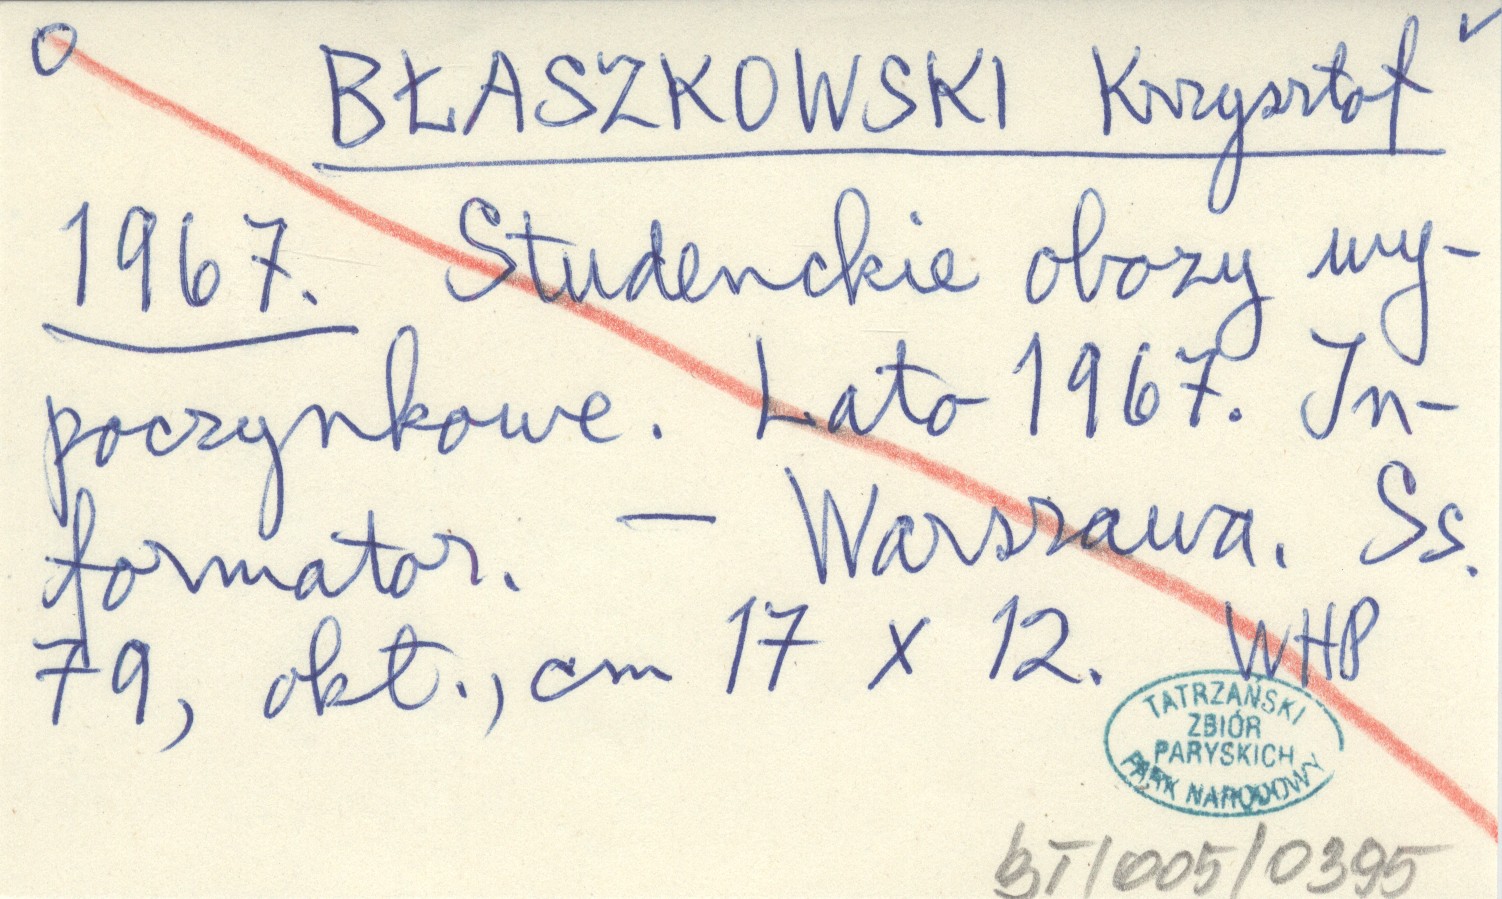 O BŁASZKOWSKI Krzysztof ✓
1967. Studenckie obozy wy-
poczynkowe. Lato 1967. In-
formator. — Warszawa. Ss.
79, okt., cm 17 x 12. WHP
TATRZAŃSKI
ZBIÓR
PARYSKICH
PARK NARODOWY
BT/005/0395